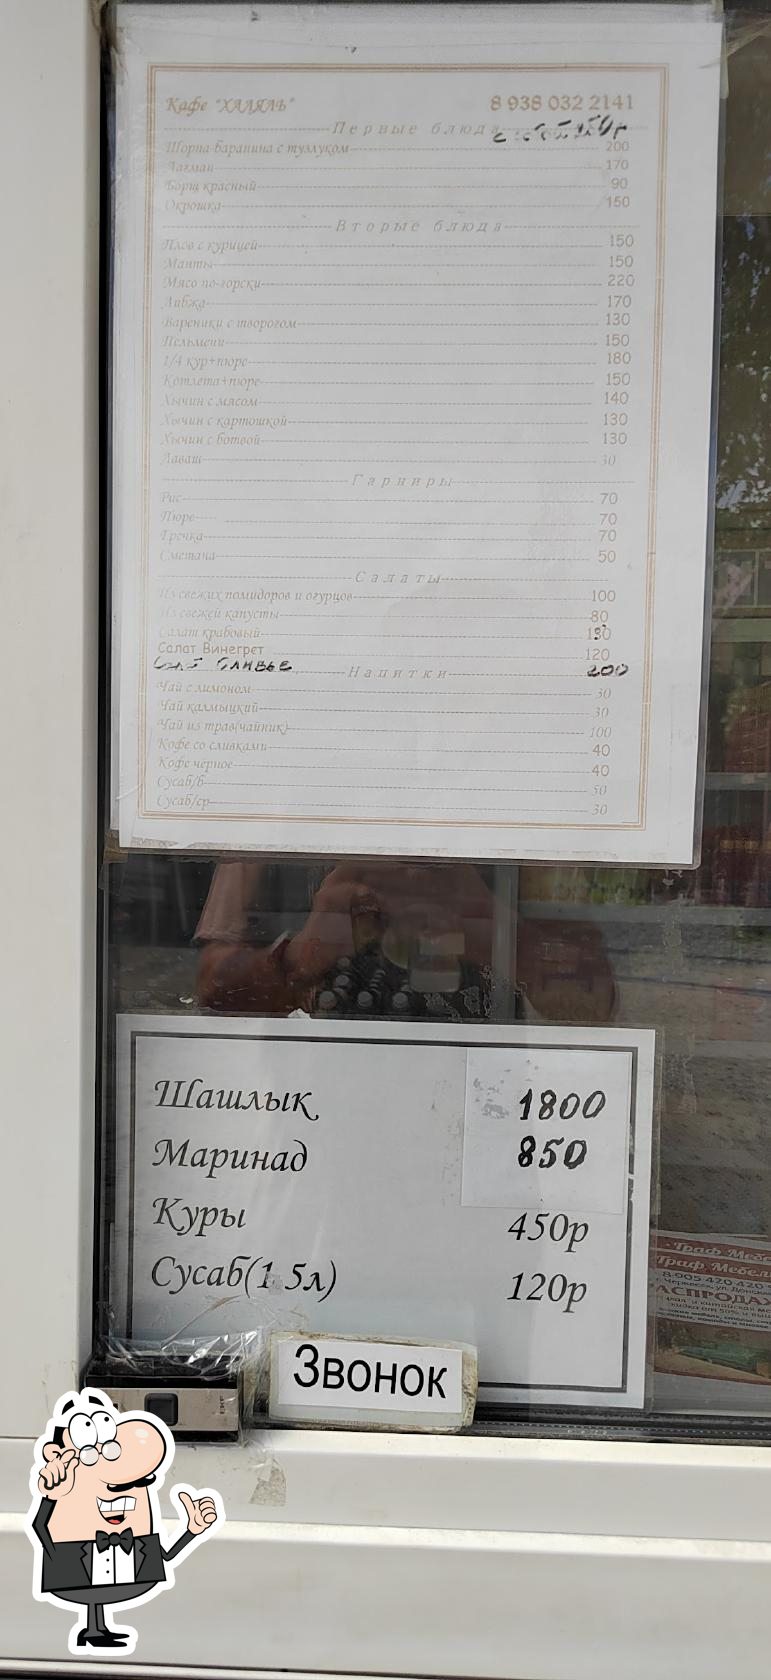 Кафе "ХАЛЯЛЬ" 8 938 032 2141
Первые блюда
Шорпа баранина с тузлуком 200
Лагман 170
Борщ красный 90
Окрошка 150
Вторые блюда
Плов с курицей 150
Манты 150
Мясо по-горски 220
Либжа 170
Вареники с творогом 130
Пельмени 150
1/4 кур+пюре 180
Котлета+пюре 150
Хычин с мясом 140
Хычин с картошкой 130
Хычин с ботвой 130
Лаваш 30
Гарниры
Рис 70
Пюре 70
Гречка 70
Сметана 50
Салаты
Из свежих помидоров и огурцов 100
Из свежей капусты 80
Салат крабовый 130
Салат Винегрет 120
Оливье 200
Напитки
Чай с лимоном 30
Чай калмыцкий 30
Чай из трав(чайник) 100
Кофе со сливками 40
Кофе чёрное 40
Сусаб/б 50
Сусаб/ср 30
Шашлык 1800
Маринад 850
Куры 450р
Сусаб(1 5л) 120р
Звонок
Граф Мебель